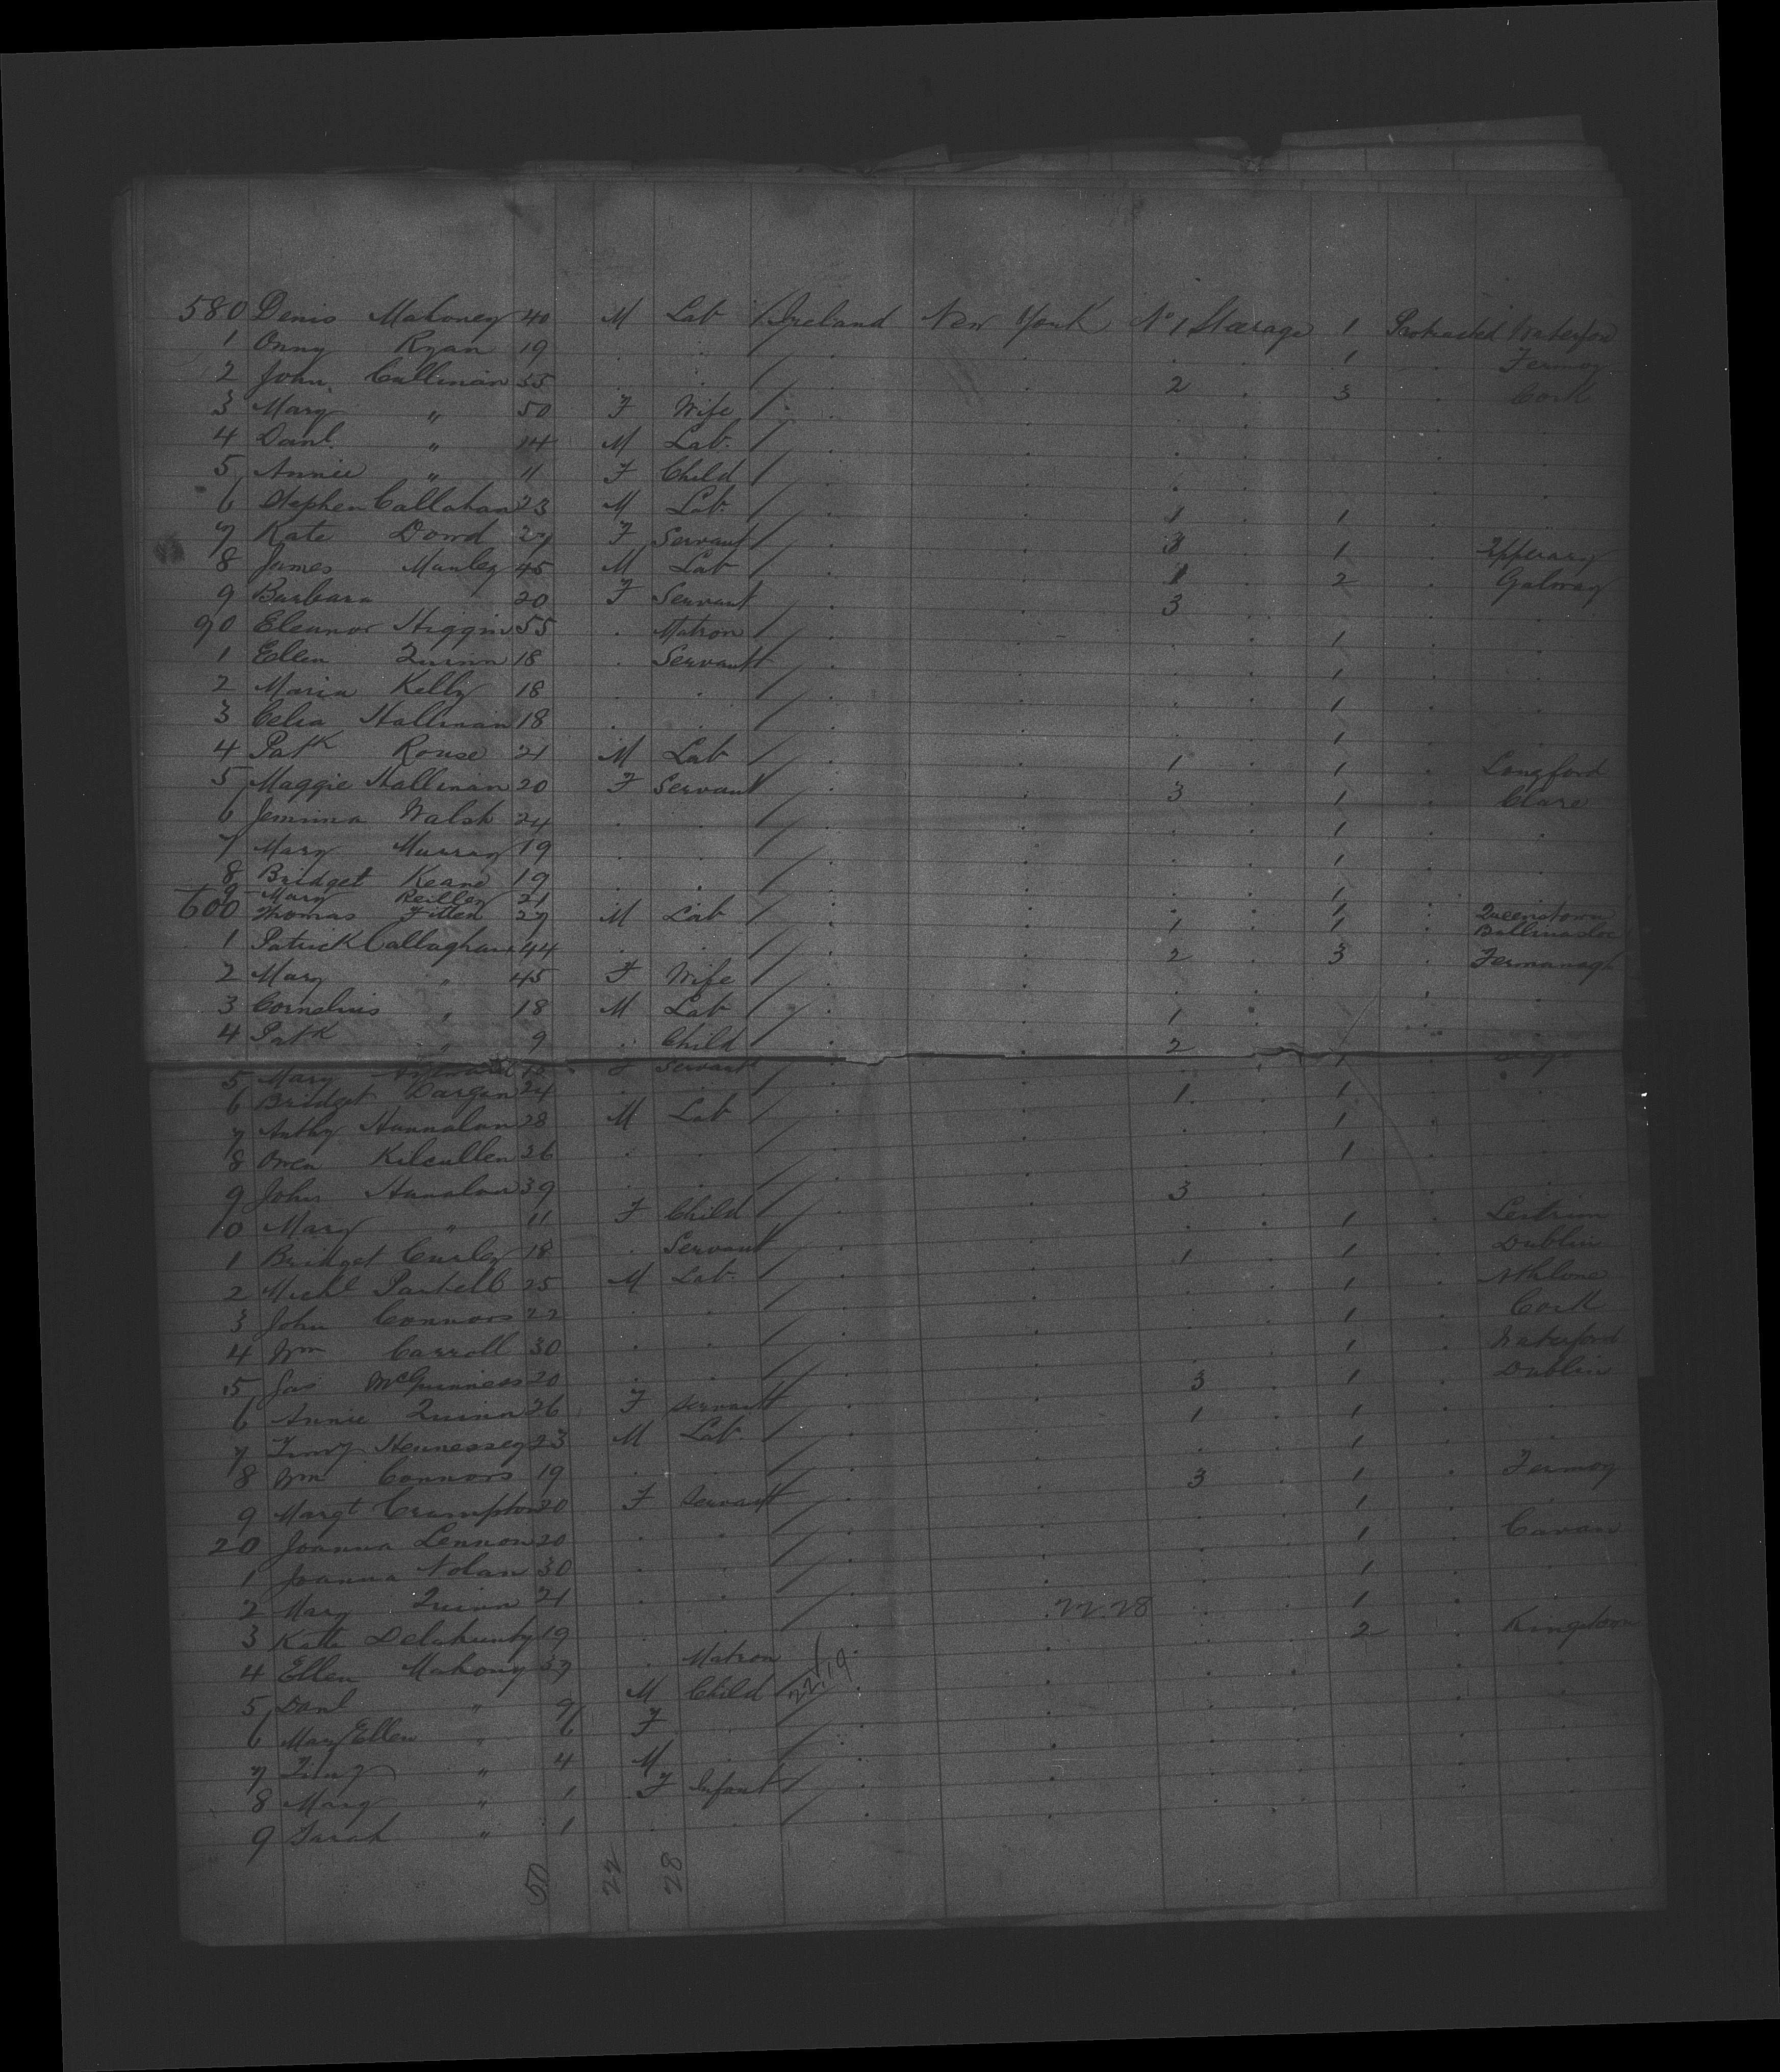 580 Denis Mahoney 40 M Lab / Ireland New York No 1 Stearage 1 Protracted Waterford
1 Onny Ryan 19 . . / . . . . 1 . Fermoy
2 John Cullinan 55 . . / . . 2 . 3 . Cork
3 Mary " 50 F Wife / . . . . . .
4 Danl. " 14 M Lab. / . . . . . .
5 Annie " 11 F Child / . . . . . .
6 Stephen Callahan 23 M Lab. / . . 1 . 1 . .
7 Kate Dowd 27 F Servant / . . 3 . 1 . Tipperary
8 James Manley 45 M Lab / . . 1 . 2 . Galway
9 Barbara 20 F Servant / . . 3 . . .
90 Eleanor Higgins 55 . Matron / . . . . 1 . .
1 Ellen Quinn 18 . Servant / . . . . 1 . .
2 Maria Kelly 18 . . / . . . . 1 . .
3 Celia Hallinan 18 . . / . . . . 1 . .
4 Patk Rouse 21 M Lab / . . 1 . 1 . Longford
5 Maggie Hallinan 20 F Servant / . . 3 . 1 . Clare
6 Jemima Walsh 24 . . / . . . . 1 . .
7 Mary Murray 19 . . / . . . . 1 . .
8 Bridget Keane 19 . . / . . . . 1 . .
9 Mary Reilley 21 . . . . 1 . Queenstown
600 Thomas 27 M Lab / . . 1 . 1 . Ballinasloe
1 Patrick Callaghan 44 . . / . . 2 . 3 . Fermanagh
2 Mary " 45 F Wife / . . . . . .
3 Cornelius " 18 M Lab / . . 1 . . .
4 Patk " 9 . Child / . . 2 . . .
5 Mary F Servant / 1 .
6 Bridget Dargan 24 . . / . . 1 . 1 . .
7 Anthy Hannalan 28 M Lab / . . . . 1 . .
8 Owen Kilcullen 26 . . / . . . . 1 . .
9 John Hanalan 39 . . / . . 3 . . .
10 Mary " 11 F Child / . . . . 1 . Leitrim
1 Bridget Curley 18 . Servant / . . 1 . 1 . Dublin
2 Michl 25 M Lab. / . . . . 1 . Athlone
3 John Connors 22 . . / . . . . 1 . Cork
4 Wm Carroll 30 . . / . . . . 1 . Waterford
5 Jas McGuinness 20 . . / . . 3 . 1 . Dublin
6 Annie Quinn 26 F Servant / . . 1 . 1 . .
7 Timy Hennessey 23 M Lab. / . . . . 1 . .
8 Wm Connors 19 . . / . . 3 . 1 . Fermoy
9 Margt Crampton 20 F Servant / . . . . 1 . .
20 Joanna Lennon 20 . . / . . . . 1 . Cavan
1 Joanna Nolan 30 . . / . . . . 1 . .
2 Mary Quinn 21 . . / . 22.28 . . 1 . .
3 Kate Delahunty 19 . . / . . . . 2 . Kingstown
4 Ellen Mahony 37 . Matron / . . . . . .
5 Danl " 9 M Child / 22/19 . . . . . .
6 Mary Ellen " 6 F . / . . . . . .
7 Timy " 4 M . / . . . . . .
8 Mary " 1 F Infant / . . . . . .
9 Sarah " 1 . . / . . . . . .
50 22 28